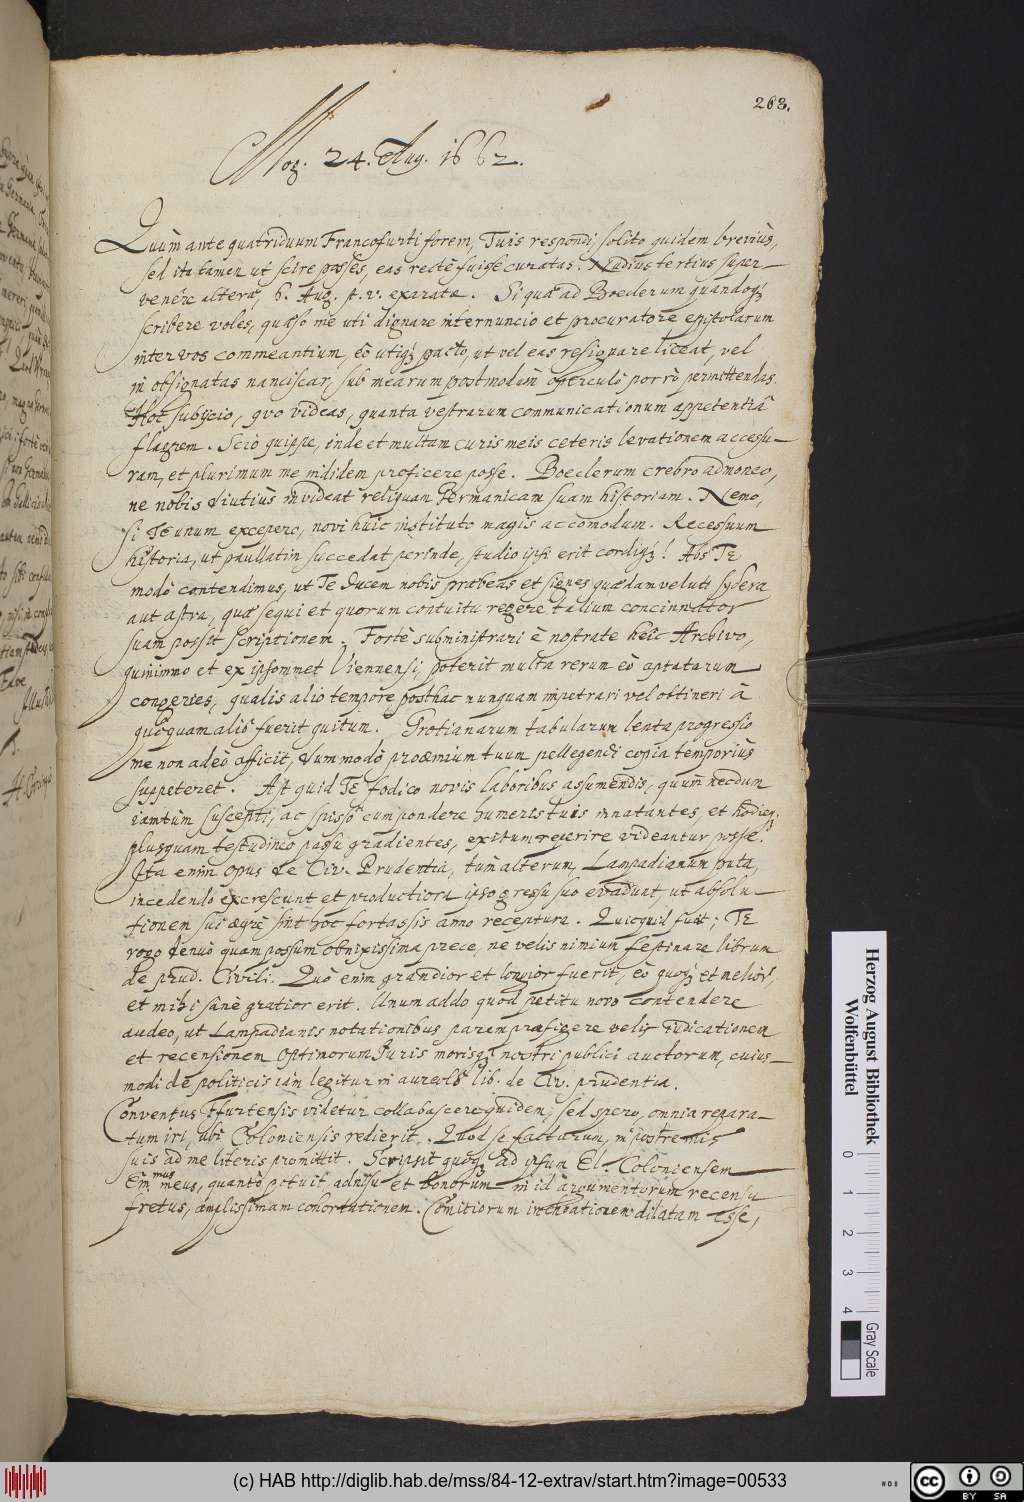 263.
Mog. 24. Aug. 1662.
Quum ante quatriduum Francofurti forem, Tuis respondi, solito quidem brevius,
sed ita tamen ut scire posses, eas rectè fuisse curatas. Nudius tertius super-
venêre alteræ, 6. Aug. st. v. exaratæ. Si quæ ad Boeclerum quandoq;
scribere voles, quæso me uti dignare internuncio et procuratore epistolarum
inter vos commeantium, eô utiq; pacto, ut vel eas resignare liceat, vel
in obsignatas nanciscar, sub mearum postmodum operculô porrò permittendas.
Hoc subijcio, quo videas, quanta vestrarum communicationum appetentiâ
flagrem. Scio quippe, inde et multam curis meis ceteris levationem accessu-
ram, et plurimum me indidem proficere posse. Boeclerum crebrò admoneo,
ne nobis diutius invideat reliquam Germanicam suam historiam. Nemo,
si Te unum excepero, novi huic instituto magis accomodum. Recessuum
historia, ut paullatim succedat perinde, studio ipsi erit cordiq;! Abs Te
modò contendimus, ut Te ducem nobis præbeas et signes quædam veluti sydera
aut astra, quæ sequi et quorum contuitu regere talium concinnator
suam possit scriptionem. Fortè subministrari è nostrate heic Archivo,
quinimmo et ex ipsommet Viennensi, poterit multa rerum eò aptatarum
congeries, qualis aliô tempore posthac nunquam impetrari vel obtineri à
quôquam aliô fuerit quitum. Grotianarum tabularum lenta progressio
me non adeò afficit, dummodò proœmium tuum pellegendi copia temporius
suppeteret. Ast quid Te fodico novis laboribus assumendis, quum necdum
iamtum suscepti, ac spissô cum pondere humeris tuis innatantes, et hodieq;
plusquam testudineo passu gradientes, exitum reperire videantur posse.
Ita enim opus de Civ. Prudentia, tum alterum, Lampadianum puta,
incedendo excrescunt et productiora ipso gressu suo evadunt, ut absolu-
tionem sui ægrè sint hoc fortassis anno receptura. Quicquid fuat; Te
rogo denuò quam possum obnixissima prece, ne velis nimium festinare librum
de prud. Civili. Quô enim grandior et longior fuerit, eô quoq; et melior,
et mihi sanè gratior erit. Unum addo quod petitu novo contendere
audeo, ut Lampadianis notationibus parem præfigere velis iudicationem
et recensionem optimorum Juris morisq; nostri publici auctorum, cuius-
modi de politicis iàm legitur in aureolô lib. de Civ. prudentia.
Conventus Ffurtensis videtur collabascere quidem; sed spero, omnia repara-
tum iri, ubi Coloniensis redierit. Quod se facturum, in postremis
suis ad me literis promittit. Scripsit quoq; ad ipsum El. Coloniensem
Em.mus meus, quantô potuit adnisu et bonorum in id argumentorum recensu
fretus, amplissimam cohortationem. Comitiorum inchoationem dilatam esse,
(c) HAB http://diglib.hab.de/mss/84-12-extrav/start.htm?image=00533
Herzog August Bibliothek
Wolfenbüttel
0 1 2 3 4
Gray Scale
cc BY SA